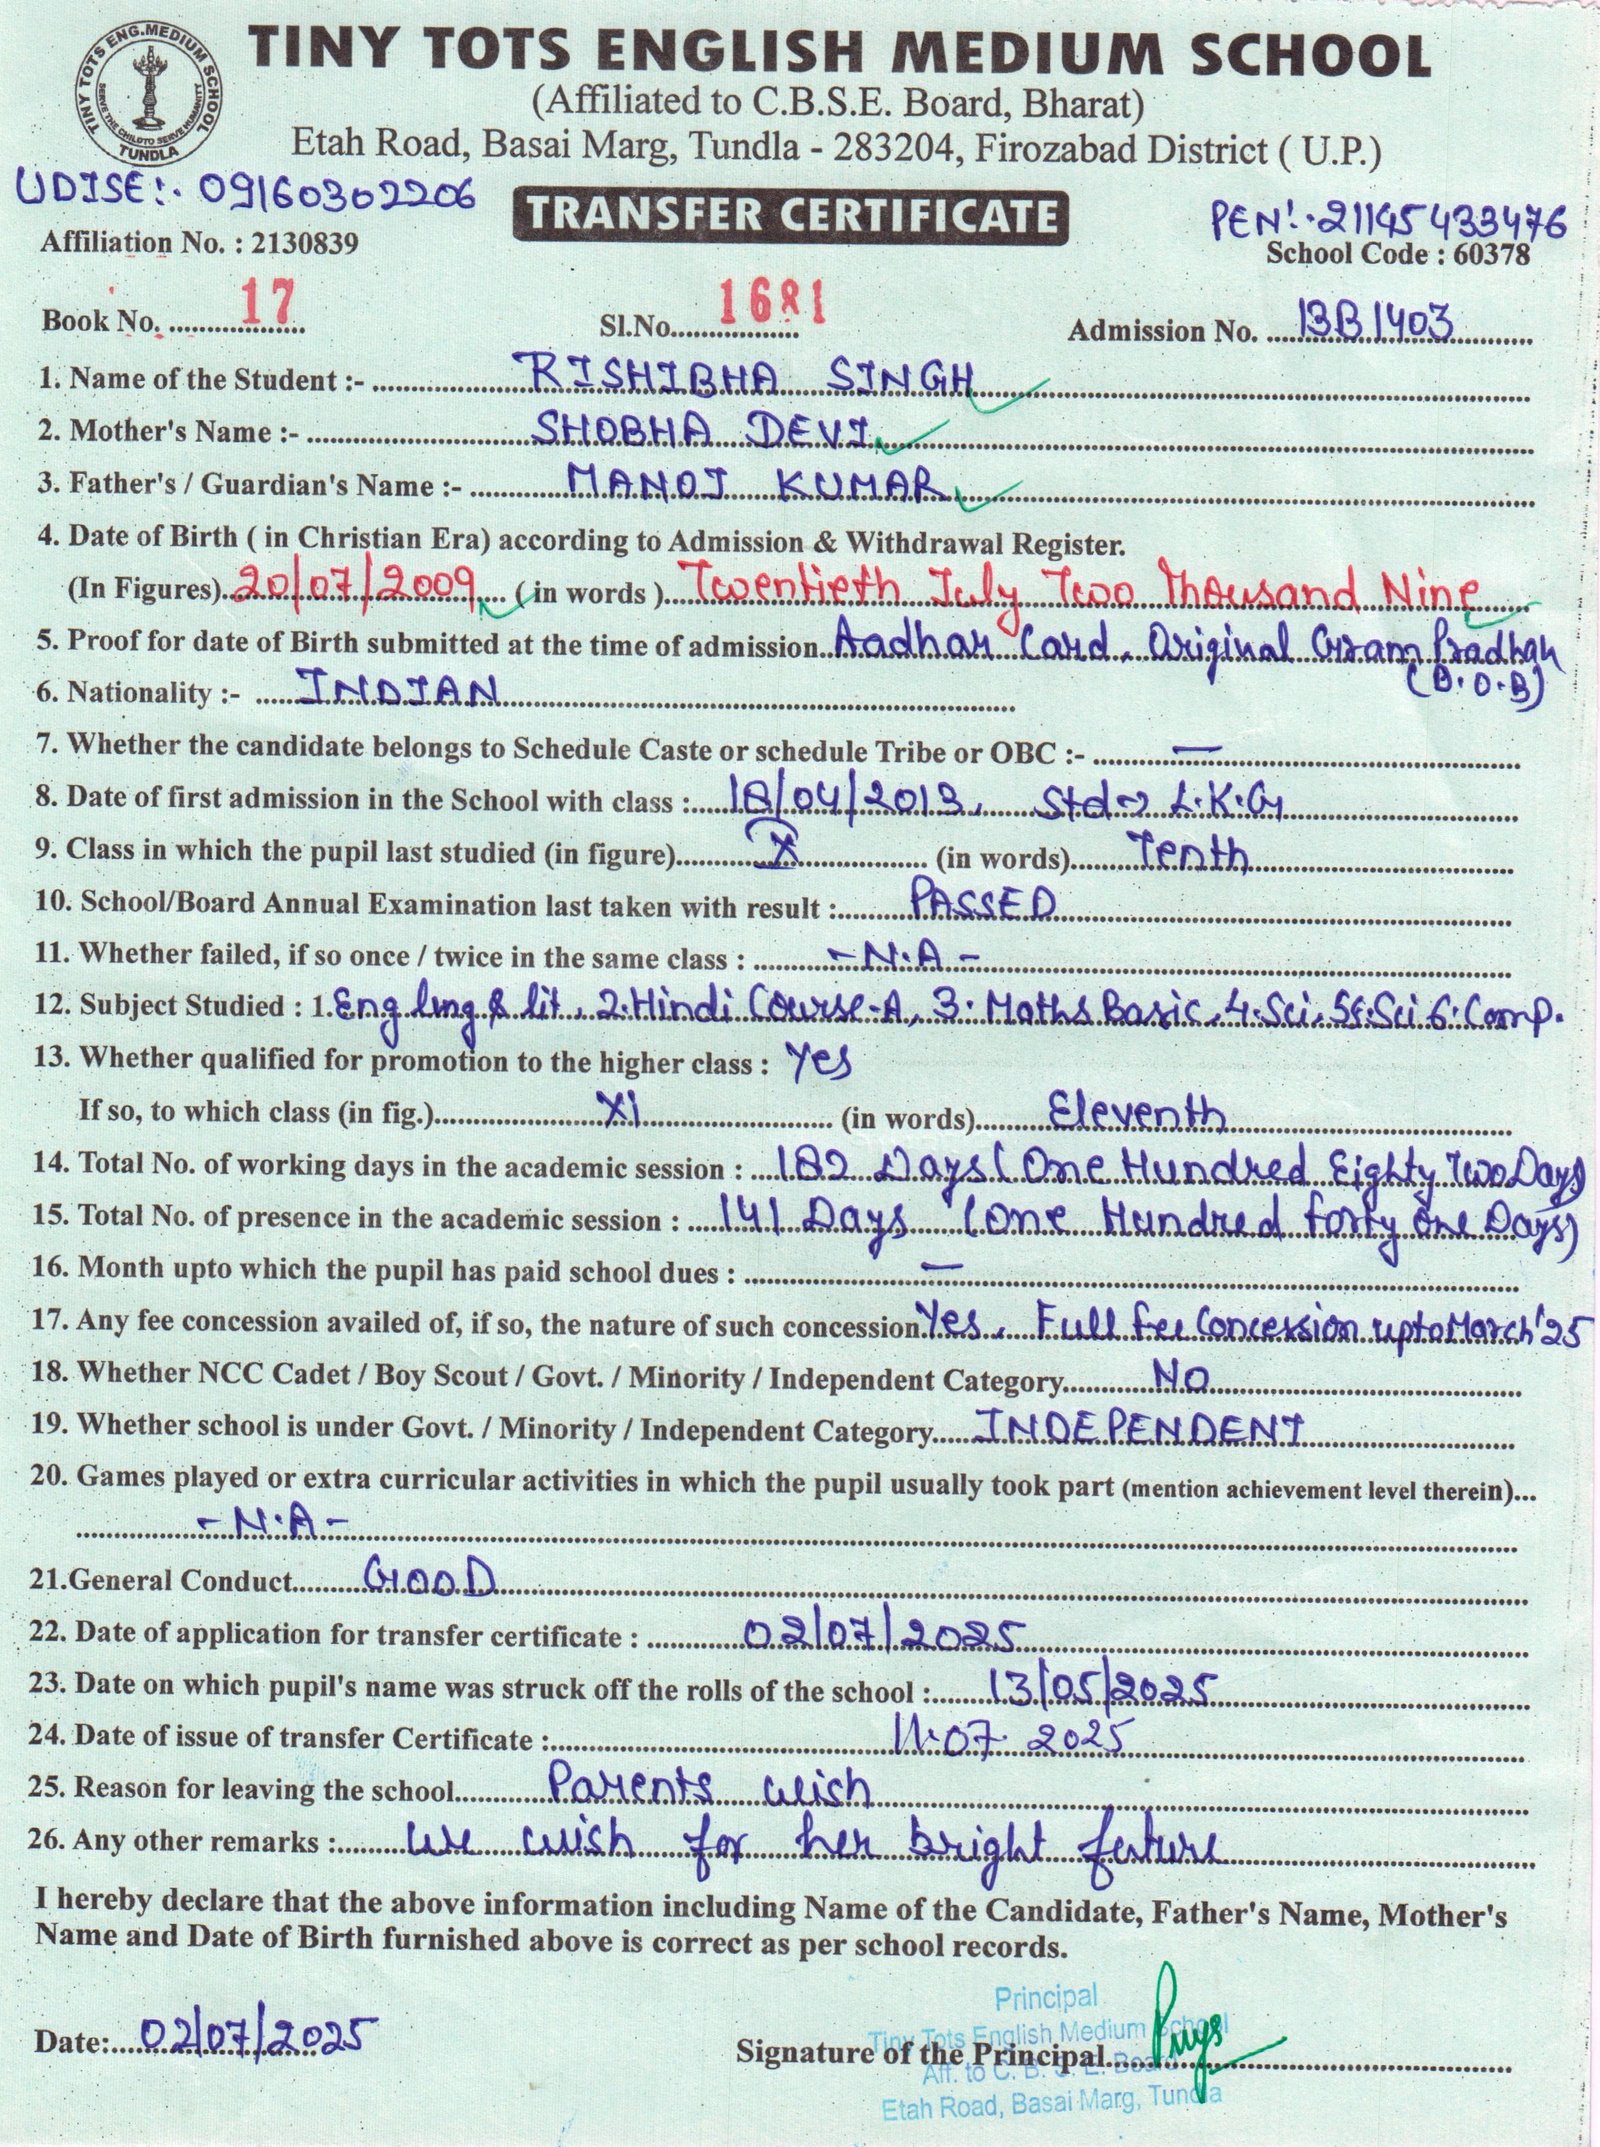 TINY TOTS ENG.MEDIUM SCHOOL
SERVE THE CHILD TO SERVE HUMANITY
TUNDLA
TINY TOTS ENGLISH MEDIUM SCHOOL
(Affiliated to C.B.S.E. Board, Bharat)
Etah Road, Basai Marg, Tundla - 283204, Firozabad District ( U.P.)
UDISE:- 09160302206
TRANSFER CERTIFICATE
PEN:- 21145433476
Affiliation No. : 2130839
School Code : 60378
Book No. 17 Sl.No. 1681 Admission No. 13B1403
1. Name of the Student :- RISHIBHA SINGH
2. Mother's Name :- SHOBHA DEVI
3. Father's / Guardian's Name :- MANOJ KUMAR
4. Date of Birth ( in Christian Era) according to Admission & Withdrawal Register.
(In Figures) 20/07/2009 (in words ) Twentieth July Two Thousand Nine
5. Proof for date of Birth submitted at the time of admission Aadhar Card, Original Gram Pradhan
(D.O.B)
6. Nationality :- INDIAN
7. Whether the candidate belongs to Schedule Caste or schedule Tribe or OBC :- —
8. Date of first admission in the School with class : 18/04/2013, Std→ L.K.G
9. Class in which the pupil last studied (in figure) X (in words) Tenth
10. School/Board Annual Examination last taken with result : PASSED
11. Whether failed, if so once / twice in the same class : -N.A-
12. Subject Studied : 1. Eng lmg & lit, 2. Hindi Course-A, 3. Maths Basic, 4. Sci, 5. S.Sci 6. Comp.
13. Whether qualified for promotion to the higher class : Yes
If so, to which class (in fig.) XI (in words) Eleventh
14. Total No. of working days in the academic session : 182 Days (One Hundred Eighty Two Days)
15. Total No. of presence in the academic session : 141 Days (One Hundred Forty One Days)
16. Month upto which the pupil has paid school dues : —
17. Any fee concession availed of, if so, the nature of such concession Yes, Full Fee Concession upto March'25
18. Whether NCC Cadet / Boy Scout / Govt. / Minority / Independent Category No
19. Whether school is under Govt. / Minority / Independent Category INDEPENDENT
20. Games played or extra curricular activities in which the pupil usually took part (mention achievement level therein)...
-N.A-
21.General Conduct GOOD
22. Date of application for transfer certificate : 02/07/2025
23. Date on which pupil's name was struck off the rolls of the school : 13/05/2025
24. Date of issue of transfer Certificate : 11.07.2025
25. Reason for leaving the school Parents wish
26. Any other remarks : We wish for her bright future
I hereby declare that the above information including Name of the Candidate, Father's Name, Mother's
Name and Date of Birth furnished above is correct as per school records.
Principal
Tiny Tots English Medium School
Date: 02/07/2025 Signature of the Principal
Aff. to C. B. S. E. Board
Etah Road, Basai Marg, Tundla